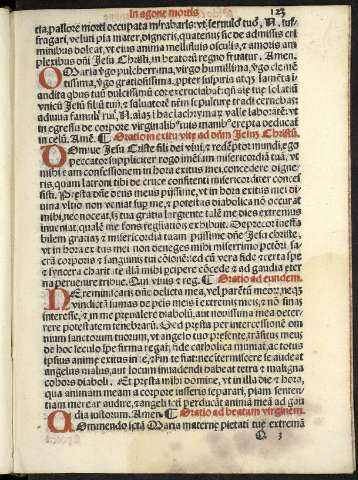 in agone mortis 123
tia, passore morti occupata mirabaris: ut seruulo tuo, N. suf-
fragari, veluti pia mater, digneris, quatenus sic de admissis cri
minibus doleat, ut eius anima mellifluis osculis, & amoris am
plexibus dñi Jesu Christi, in beatorũ regno fruatur. Amen.
O Maria virgo pulcherrima, virgo humillima, virgo cleme-
tissima, virgo gratiosissima, propter suspiria atq; lameta
audita quibus tuũ dulcissimũ cor
unicũ Jesũ filiũ tuũ, & saluatorẽ nr̃m sepulture tradi cernebas:
adiuua famulũ tuũ N. ai hac lachrymarũ valle laborãtẽ: ut
in egressu de corpore virginalib' tuis manib' erepta deducat
in celũ. Amẽ. Oratio in exitu vite ad dñm Jesum Christũ.
O Domine Jesu Christe fili dei viui, & redẽptor mundi, ego
peccator suppliciter rogo imẽsam misericordiã tuã, ut
mihi & am confessionem in hora exitus mei, concedere digne-
ris, quam latroni tibi de cruce confitenti misericorditer concef
sisti. Presta dñe deus meus pijssime, ut in hora exitus mei di-
uina ultio non veniat sup me, & potestas diabolica nõ occurat
mihi, nec noceat, sʒ tua gratia largiente tale me dies extremus
inueniat, quale me fons regliationis exhibuit. Deprecor ineffa
bilem gratiaʒ & misericordia tuam pijssime dñe Jesu Christe,
ut in hora exitus mei non deneges mihi miserrimo petõri sa-
crã corporis & sanguinis tui cõionẽ: sed cũ vera fide & certa spe
& syncera charitate illã mihi psipere cõcede & ad gaudia eter
na peruenire tribue. Qui viuis & reg. Oratio ad eundem.
NE reminiscaris dñe delicta mea, vel parẽtũ meorũ, neqʒ
vindictã sumas de pctis meis i extremis meis, & nõ sinas
interesse, & in me preualere diabolũ, aut nouissima mea deter-
rere potestatem tenebrarũ. Sed presta per intercessionẽ om
nium sanctorum tuorum, ut angelo tuo presente, trãsitus meus
de hoc seculo spe firma regat, fide catholica muniat, & totus
ipsius anime exitus in te, & pm te fiat: nec itermiscere se audeat
angelus malus, aut locum inuadendi habeat tetra & maligna
cohors diaboli. Et presta mihi domine, ut in illa die & hora,
qua animam meam a corpore iusseris separari, piam senten-
tiam merear audire, & angeli tui perducãt animã meã ad gau
dia iustorum. Amen. Oratio ad beatam virginem.
COmmendo sctã Maria materne pietati tue extremã
Q 3